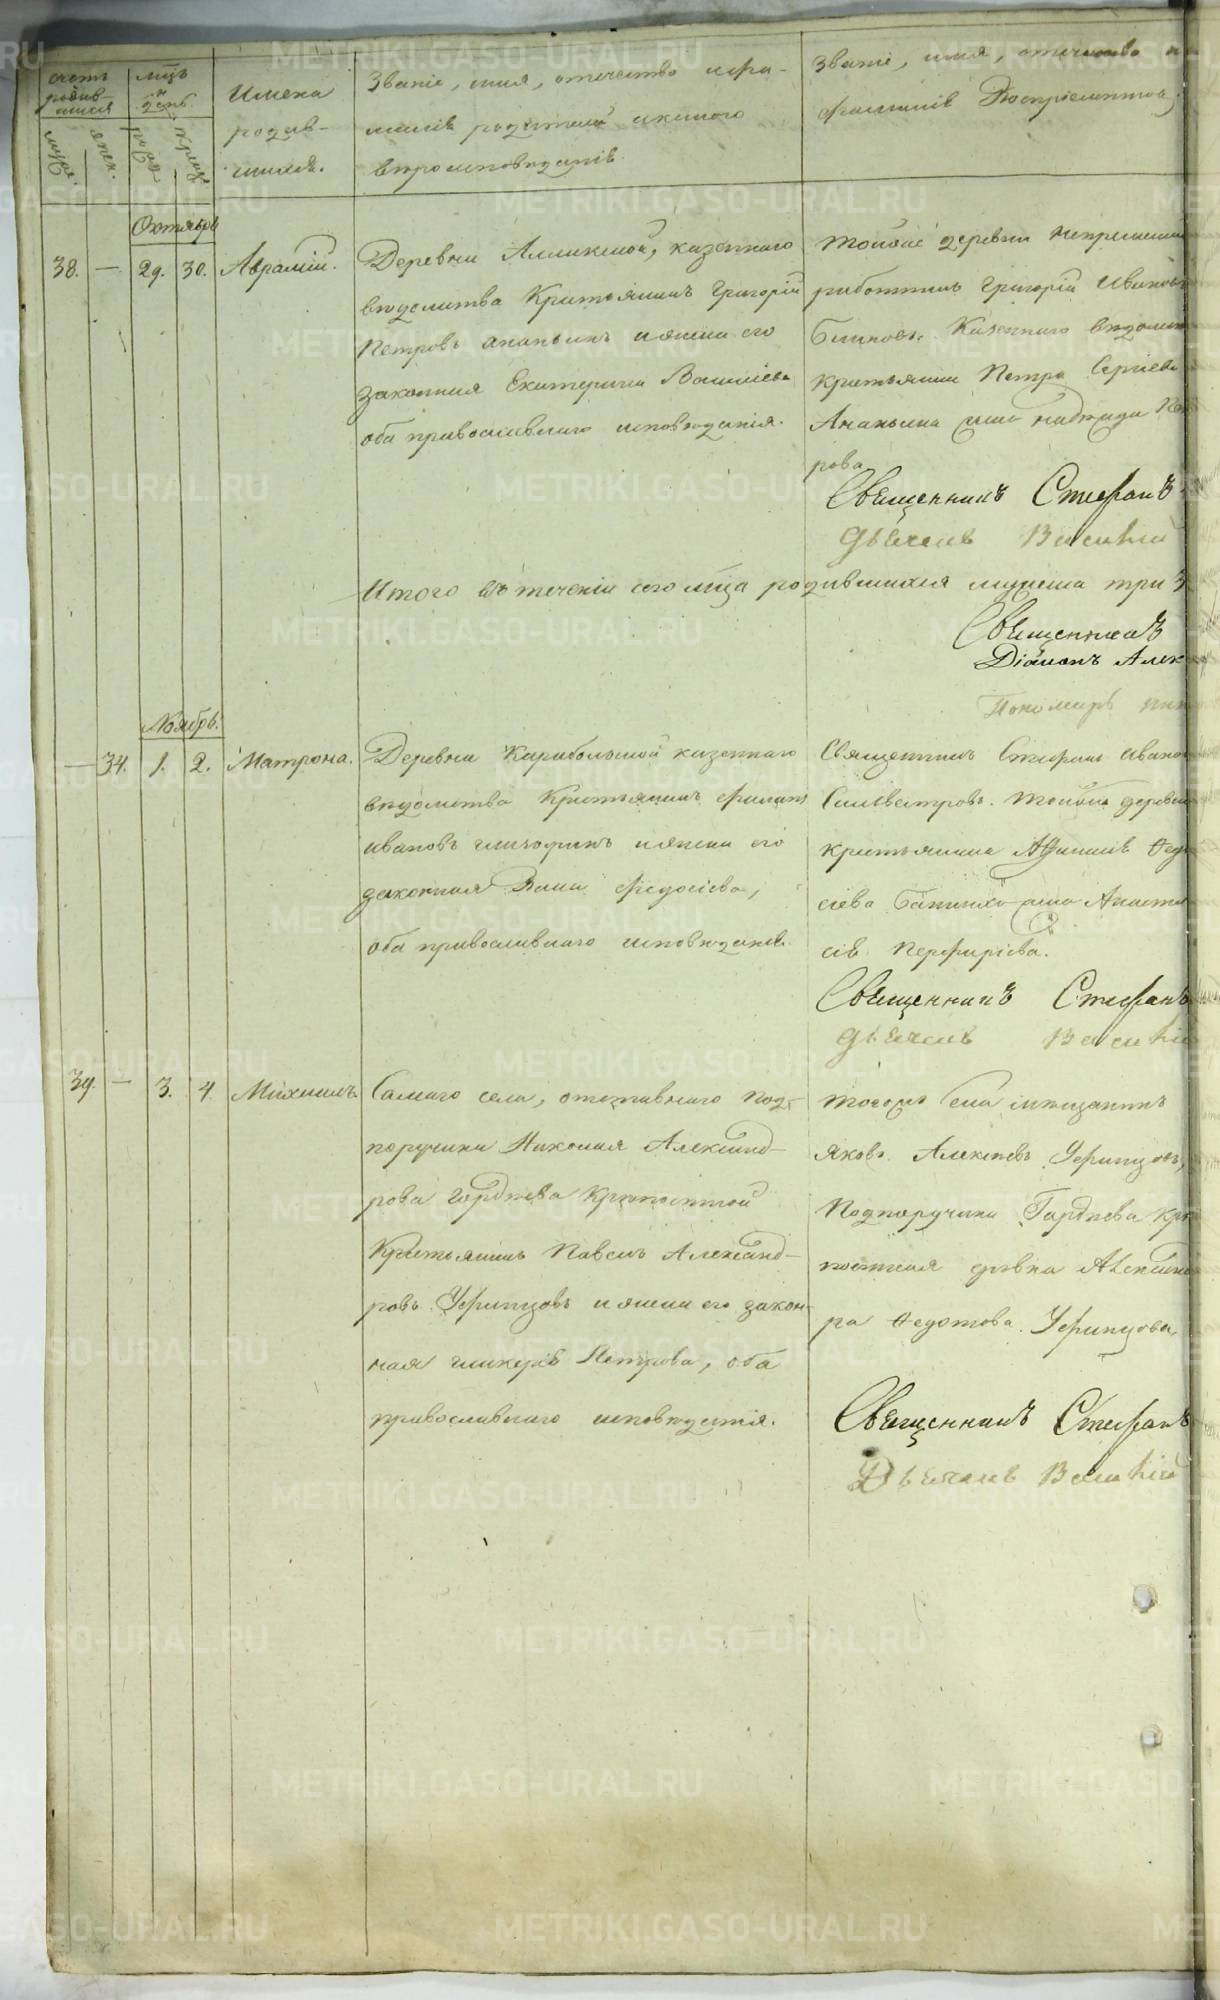 счетъ родившихся
мѣсъ и день
Имена
родив-
шихся.
Званіе, имя, отчество и фа-
милія родителей и какого
вѣроисповѣданія.
Званіе, имя, отчество и
фамилія Воспріемниковъ,
муж.
жен.
рожд.
крещ.
Октябрь
38. — 29. 30. Аврамій.
Деревни казеннаго
вѣдомства Крестьянинъ Григорій
Петровъ Ананьинъ и жена его
законная Екатерина Васильева
оба православнаго исповѣданія.
Тойже деревни непремѣнный
работникъ Григорій Ивановъ
Казеннаго вѣдомст
крестьянина Петра Сергіева
Ананьина Надежда Пет
рова
Священникъ Стефанъ
Дьячекъ Василій
Итого въ теченіи сего мѣсяца родившихся мужеска три 3
Священникъ
Діаконъ Алек
Пономарь
Ноябрь.
— 34. 1. 2. Матрона.
Деревни казеннаго
вѣдомства Крестьянинъ Филипъ
Ивановъ и жена его
законная Анна Федосіева,
оба православнаго исповѣданія.
Священникъ Стефанъ Ивано
Сильвестровъ. Тойже деревни
крестьянина
сіева Анаста
сія Перфиріева.
Священникъ Стефанъ
Дьячекъ Василій
39. — 3. 4. Михаилъ.
Самаго села, отставнаго под-
поручика Николая Александ-
рова Гордѣева Крѣпостной
Крестьянинъ Павелъ Александ-
ровъ Уфинцовъ и жена его закон-
ная Гликерія Петрова, оба
православнаго исповѣданія.
Тогожъ села мѣщанинъ
Яковъ Алексѣевъ Уфинцовъ,
Подпоручика Гардѣева крѣ
постная дѣвка Александ
ра Федотова Уфинцова,
Священникъ Стефанъ
Дьячекъ Василій
METRIKI.GASO-URAL.RU